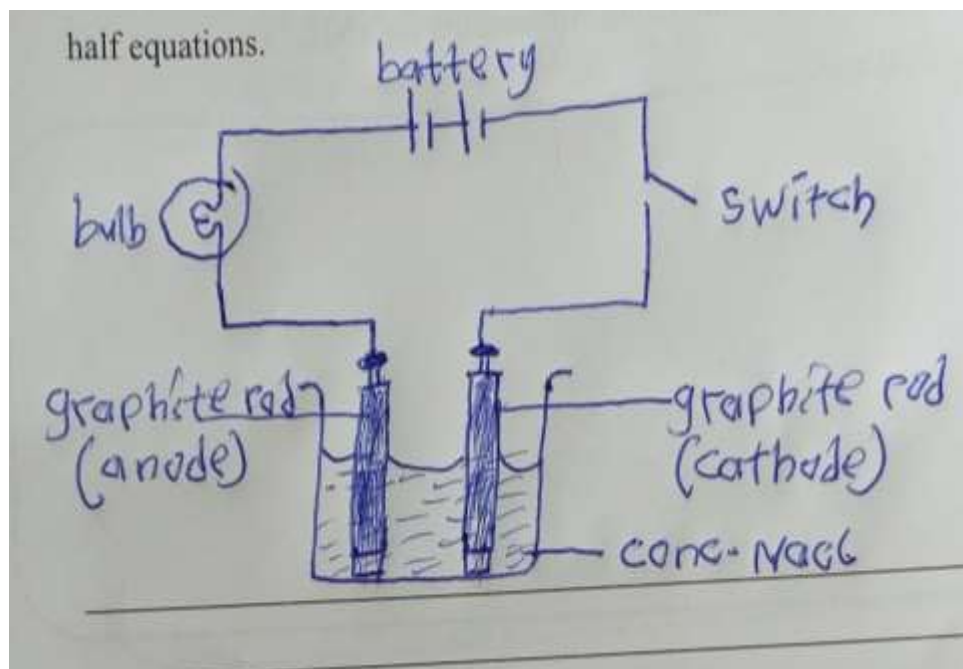 half equations.
battery
bulb
switch
graphite rod
(anode)
graphite rod
(cathode)
conc. NaCl